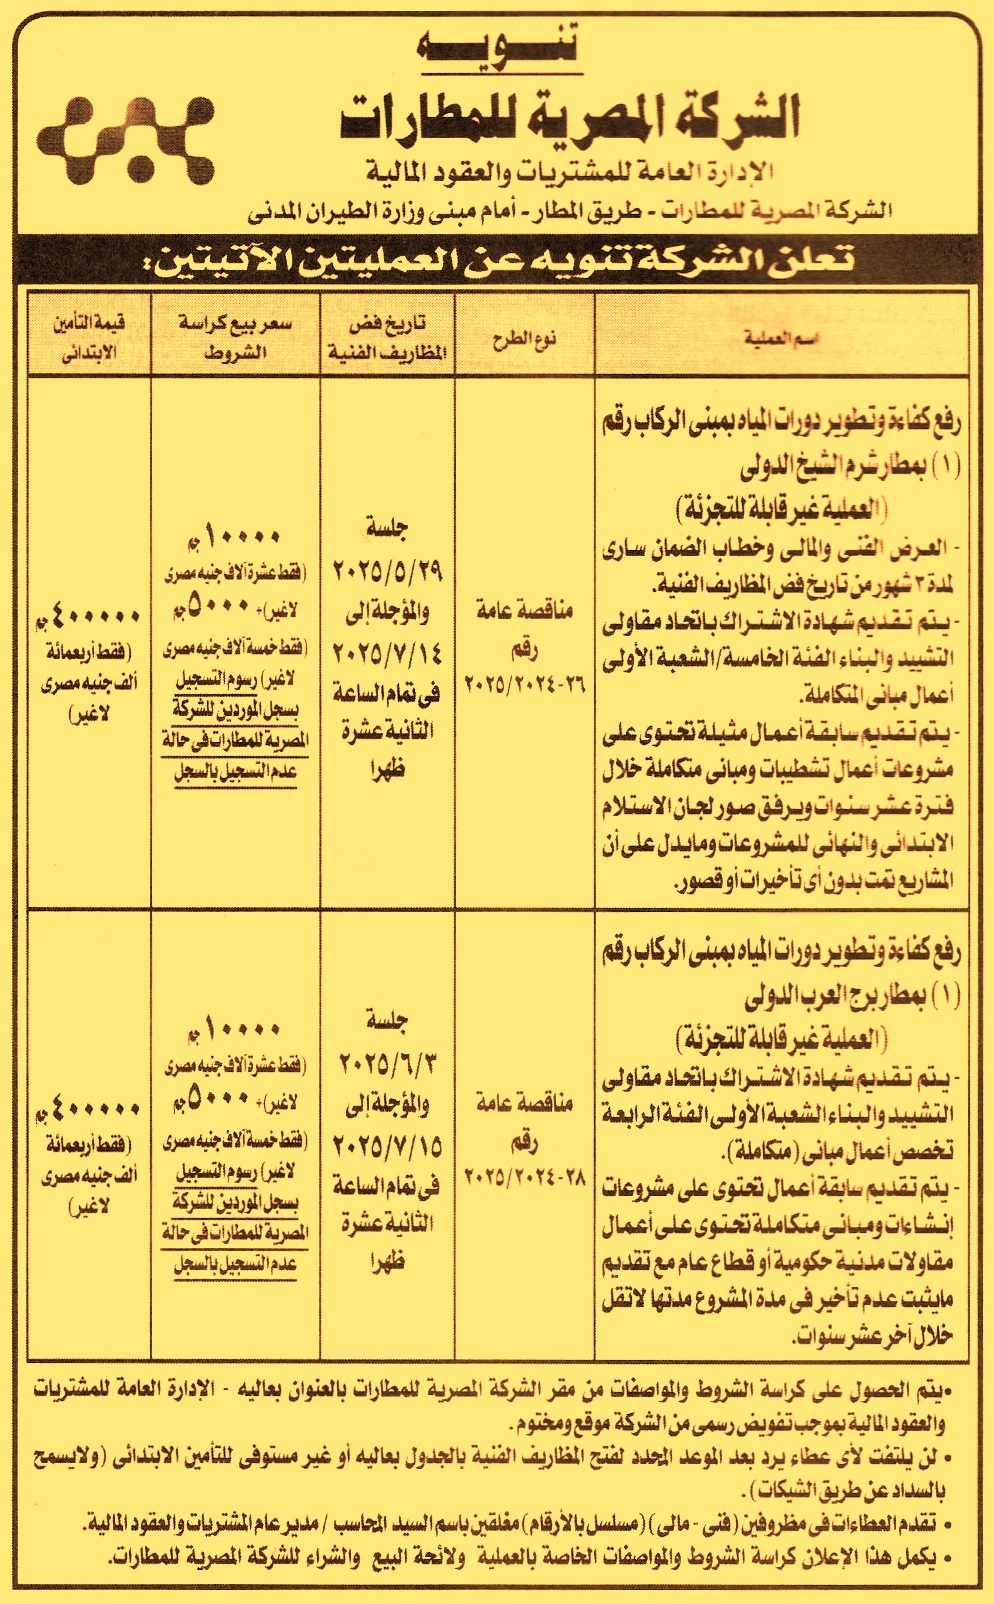 تنويه
الشركة المصرية للمطارات
الإدارة العامة للمشتريات والعقود المالية
الشركة المصرية للمطارات - طريق المطار - أمام مبنى وزارة الطيران المدنى
تعلن الشركة تنويه عن العمليتين الآتيتين:
اسم العملية
نوع الطرح
تاريخ فض
المظاريف الفنية
سعر بيع كراسة
الشروط
قيمة التأمين
الابتدائى
رفع كفاءة وتطوير دورات المياه بمبنى الركاب رقم
(١) بمطار شرم الشيخ الدولى
(العملية غير قابلة للتجزئة)
- العرض الفنى والمالى وخطاب الضمان سارى
لمدة ٣ شهور من تاريخ فض المظاريف الفنية.
- يتم تقديم شهادة الاشتراك باتحاد مقاولى
التشييد والبناء الفئة الخامسة/الشعبة الأولى
أعمال مبانى المتكاملة.
- يتم تقديم سابقة أعمال مثيلة تحتوى على
مشروعات أعمال تشطيبات ومبانى متكاملة خلال
فترة عشر سنوات ويرفق صور لجان الاستلام
الابتدائى والنهائى للمشروعات ومايدل على أن
المشاريع تمت بدون أى تأخيرات أو قصور.
مناقصة عامة
رقم
٢٦-٢٠٢٥/٢٠٢٤
جلسة
٢٠٢٥/٥/٢٩
والمؤجلة إلى
٢٠٢٥/٧/١٤
فى تمام الساعة
الثانية عشرة
ظهرا
١٠٠٠٠ جم
(فقط عشرة آلاف جنيه مصرى
لاغير)+ ٥٠٠٠ جم
(فقط خمسة آلاف جنيه مصرى
لاغير) رسوم التسجيل
بسجل الموردين للشركة
المصرية للمطارات فى حالة
عدم التسجيل بالسجل
٤٠٠٠٠٠ جم
(فقط أربعمائة
ألف جنيه مصرى
لاغير)
رفع كفاءة وتطوير دورات المياه بمبنى الركاب رقم
(١) بمطار برج العرب الدولى
(العملية غير قابلة للتجزئة)
- يتم تقديم شهادة الاشتراك باتحاد مقاولى
التشييد والبناء الشعبة الأولى الفئة الرابعة
تخصص أعمال مبانى (متكاملة).
- يتم تقديم سابقة أعمال تحتوى على مشروعات
إنشاءات ومبانى متكاملة تحتوى على أعمال
مقاولات مدنية حكومية أو قطاع عام مع تقديم
مايثبت عدم تأخير فى مدة المشروع مدتها لاتقل
خلال آخر عشر سنوات.
مناقصة عامة
رقم
٢٨-٢٠٢٥/٢٠٢٤
جلسة
٢٠٢٥/٦/٣
والمؤجلة إلى
٢٠٢٥/٧/١٥
فى تمام الساعة
الثانية عشرة
ظهرا
١٠٠٠٠ جم
(فقط عشرة آلاف جنيه مصرى
لاغير)+ ٥٠٠٠ جم
(فقط خمسة آلاف جنيه مصرى
لاغير) رسوم التسجيل
بسجل الموردين للشركة
المصرية للمطارات فى حالة
عدم التسجيل بالسجل
٤٠٠٠٠٠ جم
(فقط أربعمائة
ألف جنيه مصرى
لاغير)
• يتم الحصول على كراسة الشروط والمواصفات من مقر الشركة المصرية للمطارات بالعنوان بعاليه - الإدارة العامة للمشتريات
والعقود المالية بموجب تفويض رسمى من الشركة موقع ومختوم.
• لن يلتفت لأى عطاء يرد بعد الموعد المحدد لفتح المظاريف الفنية بالجدول بعاليه أو غير مستوفى للتأمين الابتدائى (ولايسمح
بالسداد عن طريق الشيكات).
• تقدم العطاءات فى مظروفين (فنى - مالى) (مسلسل بالأرقام) مغلقين باسم السيد المحاسب / مدير عام المشتريات والعقود المالية.
• يكمل هذا الإعلان كراسة الشروط والمواصفات الخاصة بالعملية ولائحة البيع والشراء للشركة المصرية للمطارات.